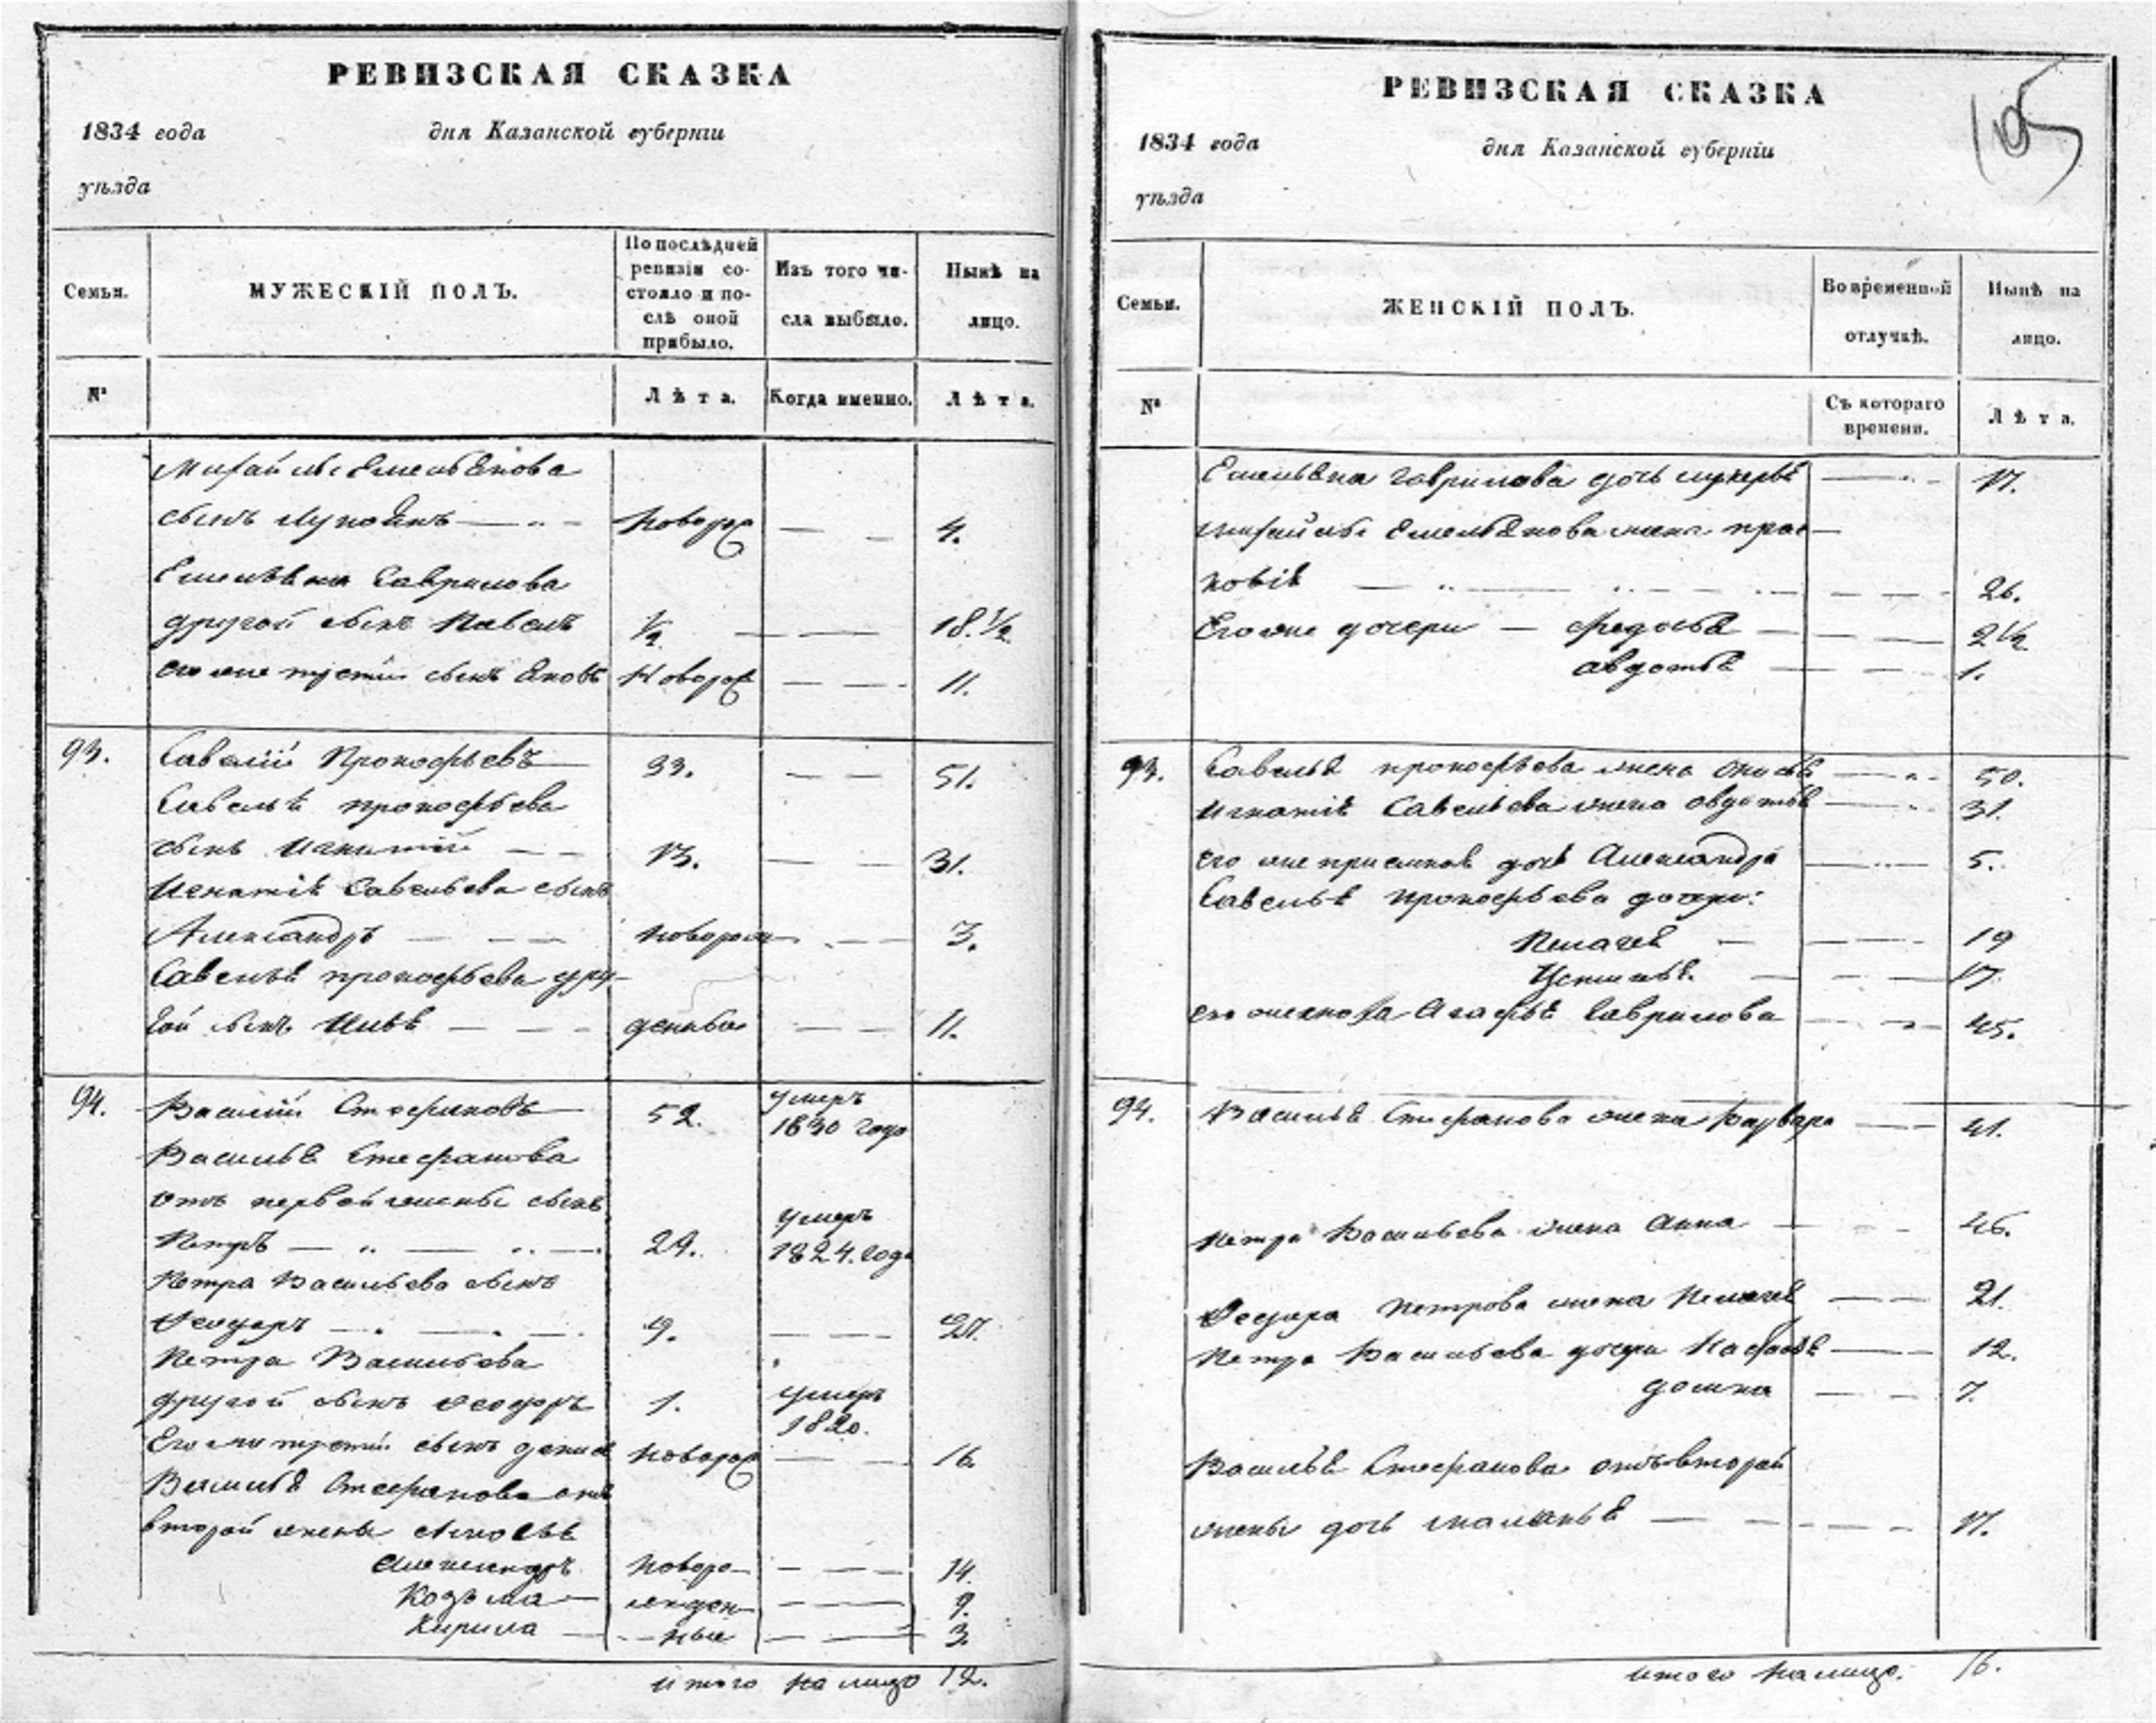 РЕВИЗСКАЯ СКАЗКА
1834 года дня Казанской губерніи
уѣзда
Семьи.
МУЖЕСКІЙ ПОЛЪ.
По послѣдней
ревизіи со-
стояло и по-
слѣ оной
прибыло.
Изъ того чи-
сла выбыло.
Нынѣ на
лицо.
№
Лѣта.
Когда именно.
Лѣта.
Михайлы Емельянова
сынъ Лукоянъ новорож 4.
Емельяна Гаврилова
другой сынъ Павелъ 1/2 18.1/2
его же третій сынъ Яковъ Новорож 11.
93. Савелій Прокофьевъ 33. 51.
Савелья прокофьева
сынъ Игнатій 13. 31.
Игнатія Савельева сынъ
Александръ новорож 3.
Савелья прокофьева дру-
гой сынъ денные 11.
94. Василій Стефановъ 52. умеръ
1830 года
Василья Стефанова
отъ первой жены сынъ
Петръ 29. умеръ
1824. года
Петра Васильева сынъ
Ѳеодоръ 9. 27.
Петра Васильева
другой сынъ Ѳеодоръ 1. умеръ
1820.
Его же третій сынъ денис новорож 16.
Василья Стефанова отъ
второй жены
Александръ новоро- 14.
Козьма жден- 9.
Кирила ные 3.
итого на лицо 12.
РЕВИЗСКАЯ СКАЗКА
105
1834 года дня Казанской губерніи
уѣзда
Семьи.
ЖЕНСКІЙ ПОЛЪ.
Во временной
отлучкѣ.
Нынѣ на
лицо.
№
Съ котораго
времени.
Лѣта.
Емельяна Гаврилова дочь лукерья 17.
михайлы Емельянова жена прас-
ковія 26.
Его же дочери Федосья 2 1/2
авдотья 1.
93. Савелья прокофьева жена 50.
Игнатія Савельева жена авдотья 31.
его же дочь Александра 5.
Савелья Прокофьева дочери:
Пелагея 19
Устинья 17.
его Агафья Гаврилова 45.
94. Василья Стефанова жена Варвара 41.
Петра Васильева жена Анна 46.
Ѳедора петрова жена Пелагея 21.
Петра Васильева дочери 12.
домна 7.
Василья Стефанова отъ второй
жены дочь маланья 17.
итого на лицо. 16.